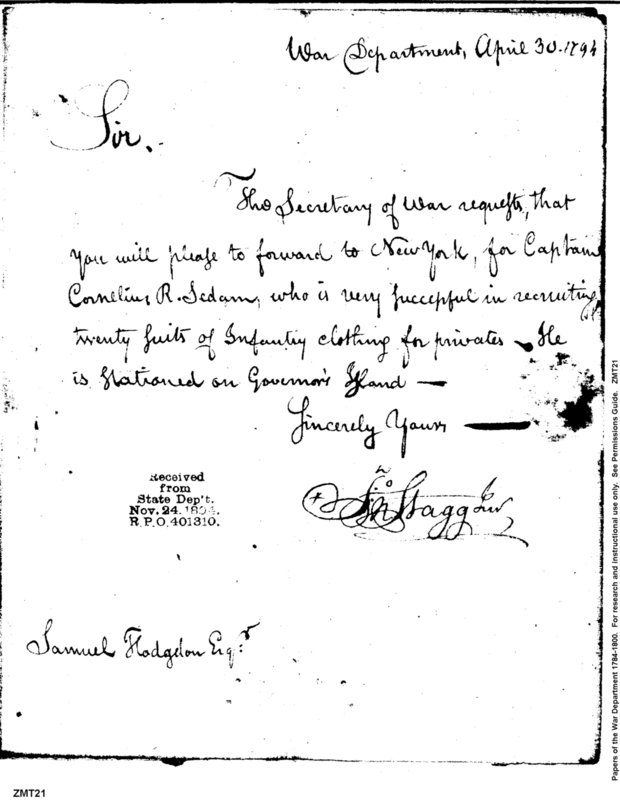 War Department, April 30. 1794
Sir.
The Secretary of War requests, that
you will please to forward to New York, for Captain
Cornelius R. Sedam, who is very successful in recruiting,
twenty suits of Infantry clothing for privates — He
is Stationed on Governor's Island —
Sincerely Yours,
Jn Stagg Jur
Received
from
State Dep't.
Nov. 24. 1894.
R.P.O. 401310.
Samuel Hodgdon Esqr.
Papers of the War Department 1784-1800. For research and instructional use only. See Permissions Guide. ZMT21
ZMT21